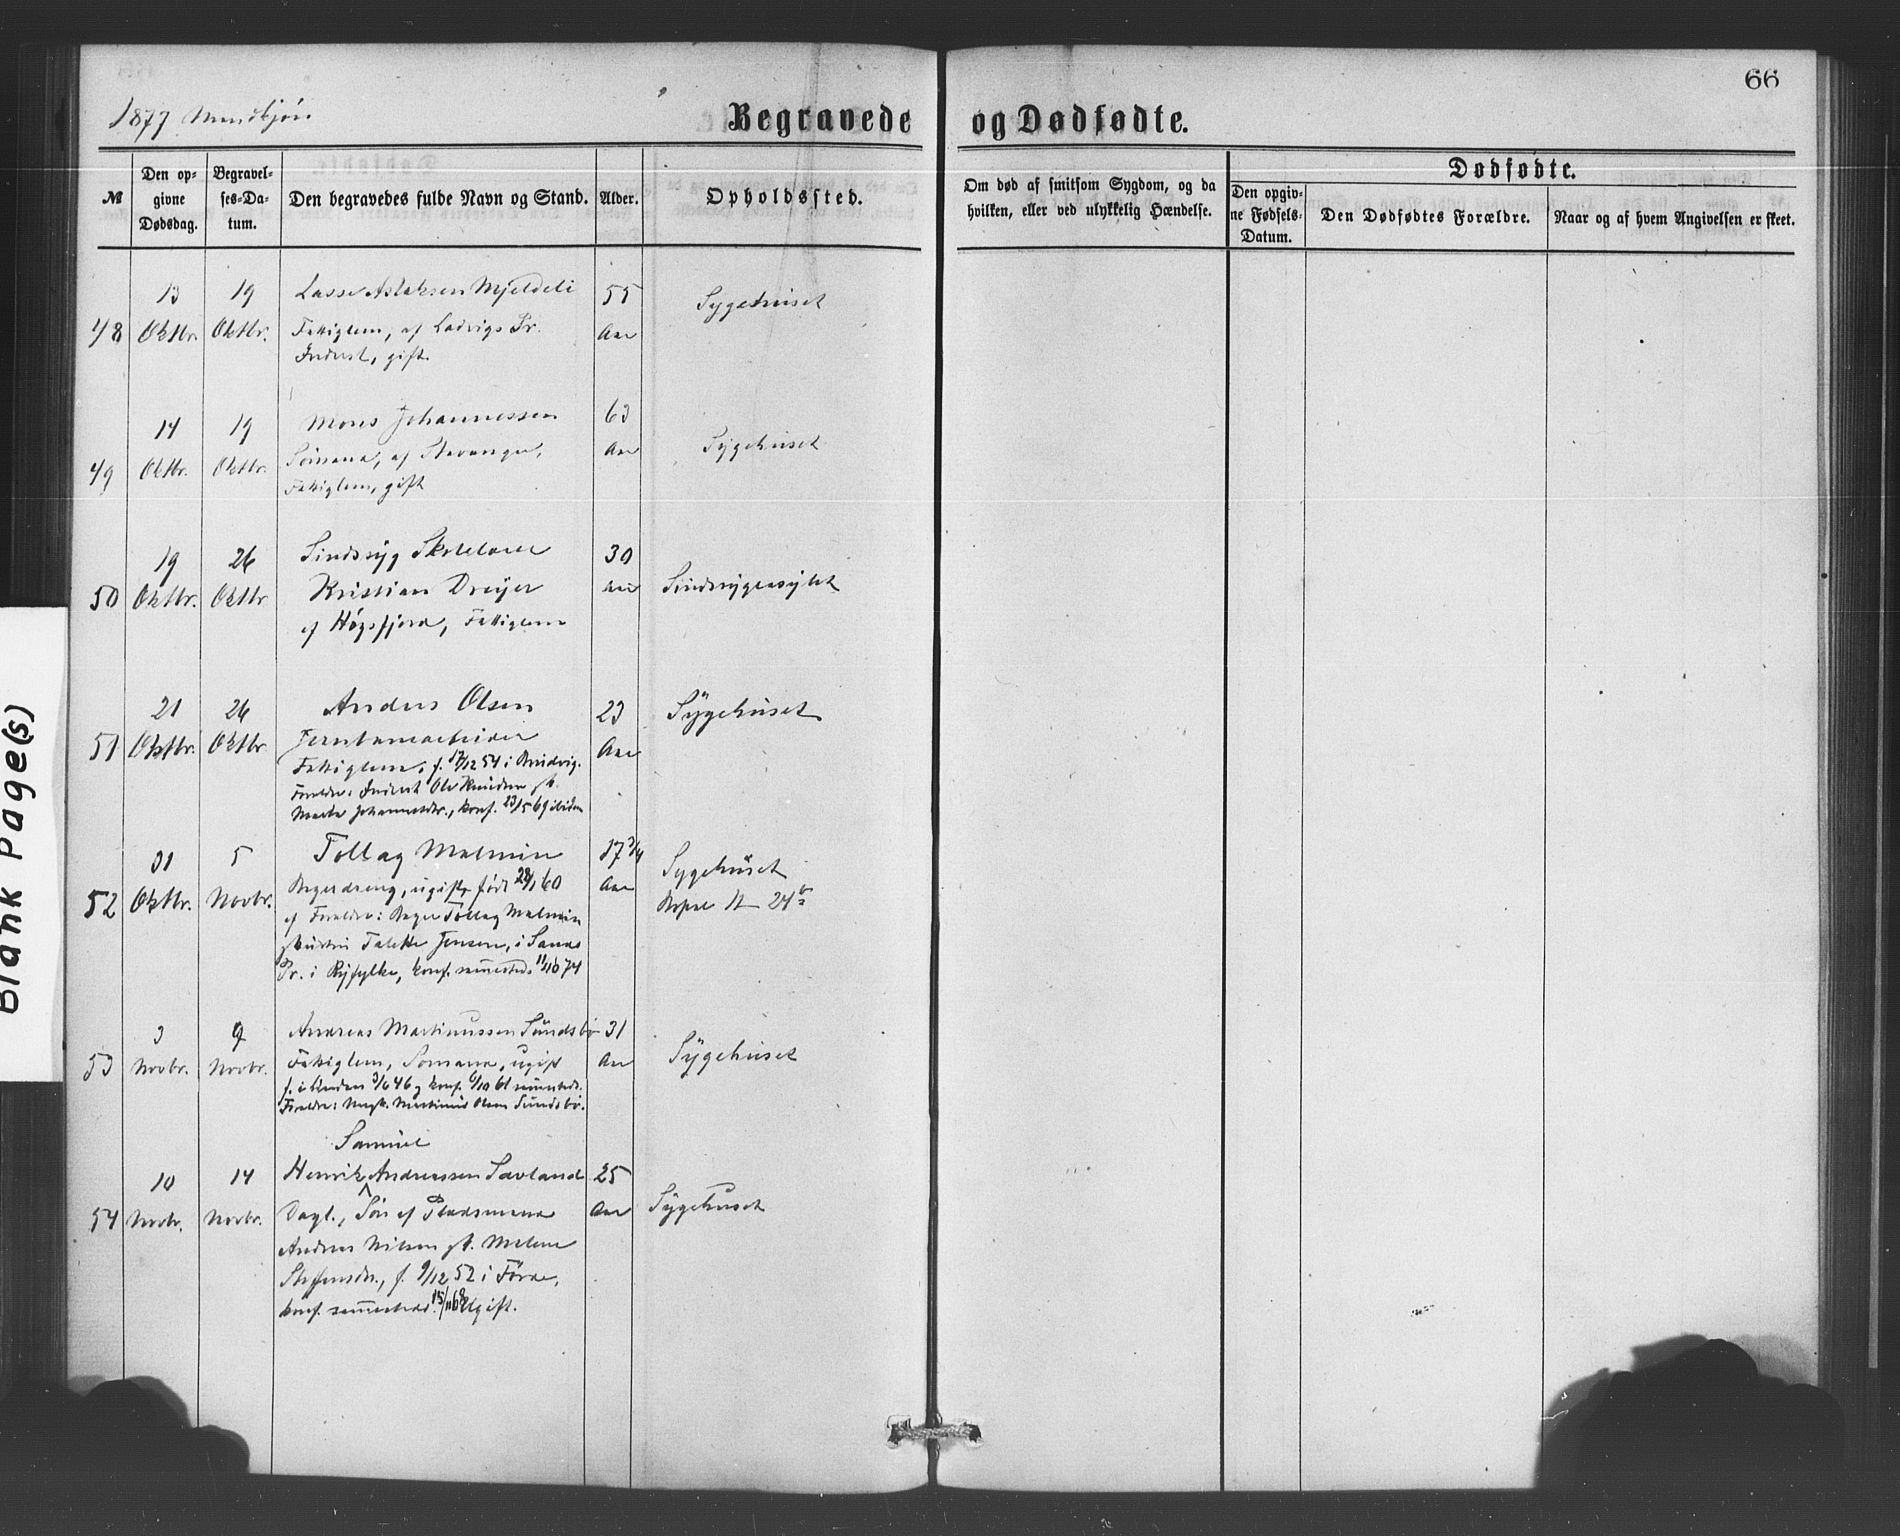 66
1877 Mandkjøn.
Begravede og Dødfødte.
№
Den opgivne Dødsdag.
Begravelses-Datum.
Den begravedes fulde Navn og Stand.
Alder.
Opholdssted.
Om død af smitsom Sygdom, og da hvilken, eller ved ulykkelig Hændelse.
Dødfødte.
Den opgivne Fødsels-Datum.
Den Dødfødtes Forældre.
Naar og af hvem Angivelsen er skeet.
48
13 Oktbr.
19 Oktbr.
Lasse Aslaksen Mjeldeli
Fattiglem, af Ladvigs Pr.
Inderst, gift.
55 Aar
Sygehuset
49
14 Oktbr.
19 Oktbr.
Mons Johannessen
Sömand, af Stavanger,
Fattiglem, gift
63 Aar
Sygehuset
50
19 Oktbr.
26 Oktbr
Sindssyg Skolelærer
Kristian Dreyer
af Høgsfjord, Fattiglem
30 Aar
Sindssygeasylet
51
21 Oktbr.
26 Oktbr.
Anders Olsen
Jernbanearbeider
Fattiglem, f. 12 54 i
Forældre: Inderst Ole Knudsen
Marta Johannesdr., konf. 23/5 69 ibidem
23 Aar
Sygehuset
52
31 Oktbr.
5 Novbr.
Tollag Malmin
Bagerdreng, ugift, født 28/1 60
af Forældre: Bager Tollag Malmin
Hustru Jensen, i Sands
Pr. i Ryfylke, konf. sammesteds 11/10 74
17 3/4 Aar
Sygehuset
24
53
3 Novbr.
9 Novbr.
Andreas Martinussen Sundsbø
Fattiglem, Sömand, ugift
f. i 46 og konf. 6/10 61 sammesteds.
Forældre: Martinus Olsen Sundsbø.
31 Aar
Sygehuset
54
10 Novbr.
14 Novbr.
Samuel
Henrik Andreassen Savland
Dagl., Sön af Pladsmand
Andreas Nilsen og Malene
Steffensdr., f. 9/12 52 i Förde,
konf. sammesteds 15/11 68 Ugift.
25 Aar
Sygehuset
Blank Page(s)